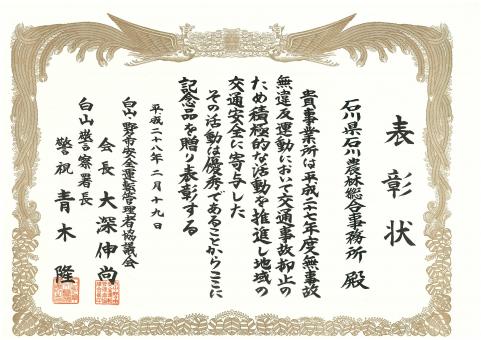 表彰状
石川県石川農林総合事務所 殿
貴事業所は平成二十七年度無事故
無違反運動において交通事故抑止の
ため積極的な活動を推進し地域の
交通安全に寄与した
その活動は優秀であることからここに
記念品を贈り表彰する
平成二十八年二月十九日
白山・野々市安全運転管理者協議会
会長 大深伸尚
白山警察署長
警視 青木隆